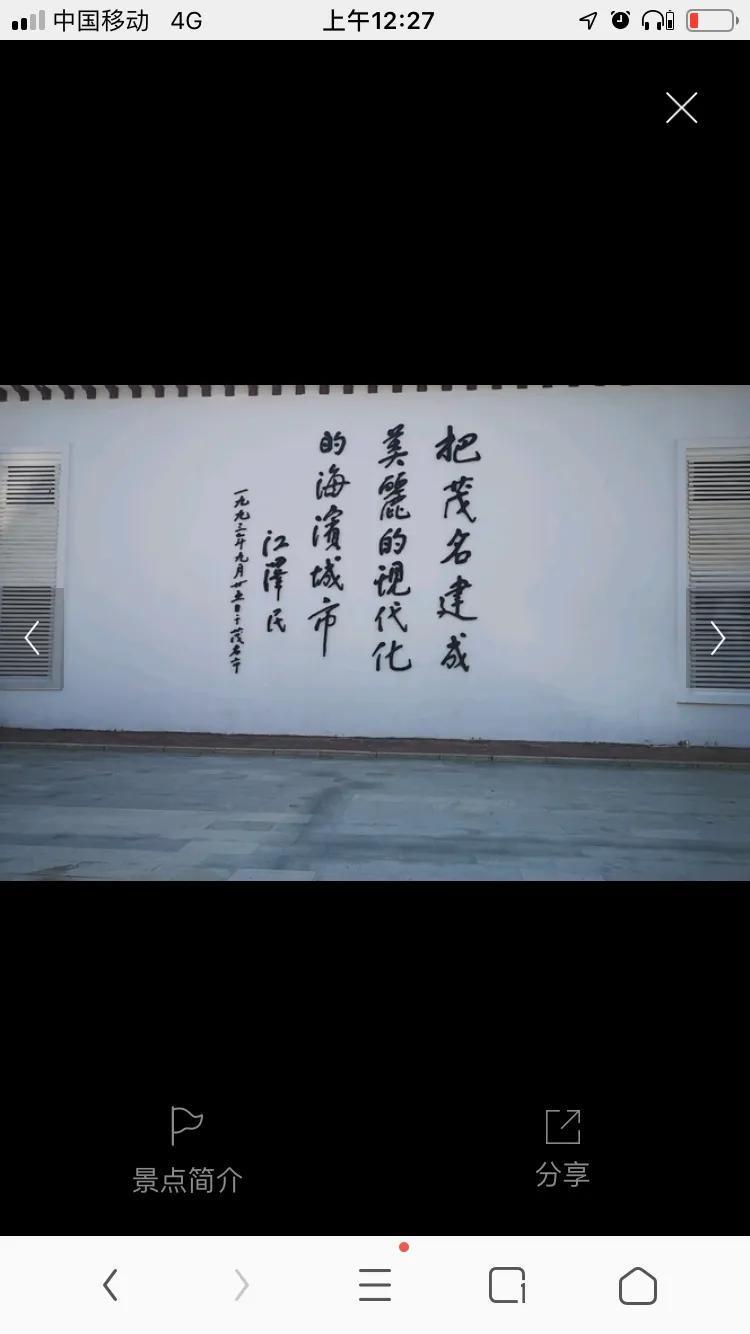 中国移动 4G 上午12:27
把茂名建成
美麗的現代化
的海濱城市
江澤民
一九九三年九月廿五日于茂名市
景点简介 分享